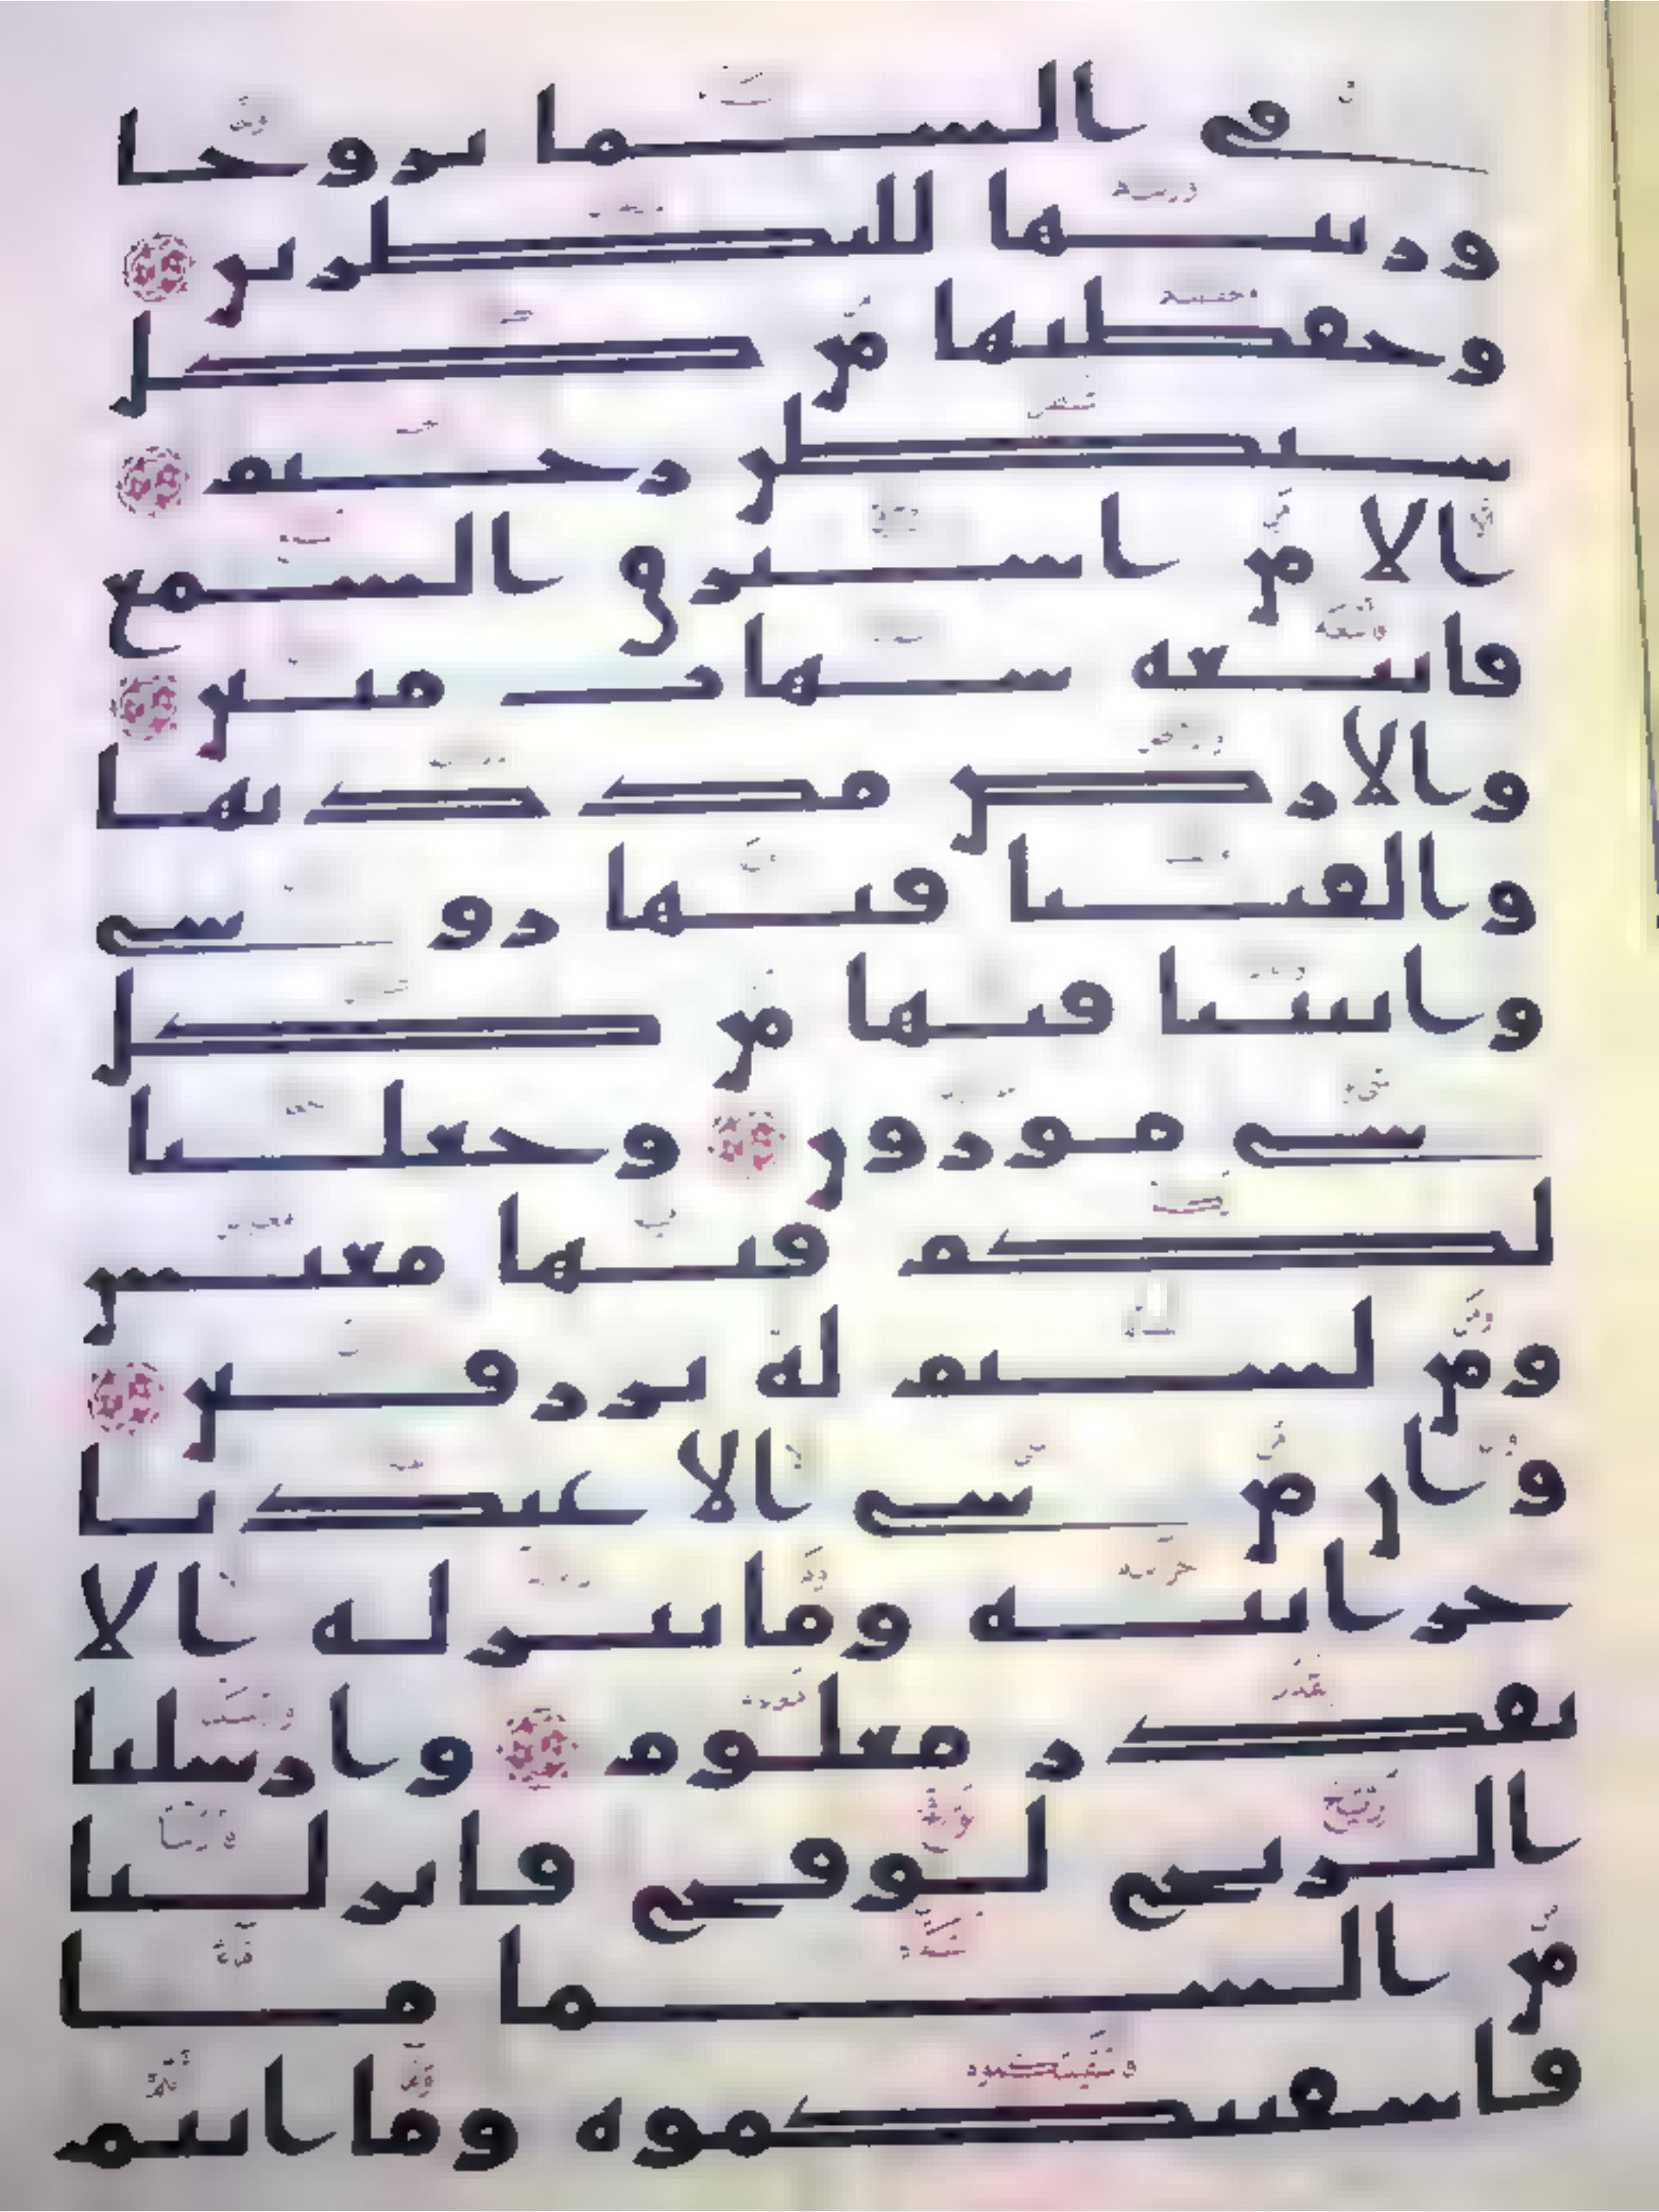 في السما بروجا
وزينها للنظرين
وحفظنها من كل
شيطن رجيم
الا من استرق السمع
فاتبعه شهاب مبين
والارض مددنها
والقينا فيها روسي
وانبتنا فيها من كل
شي موزون وجعلنا
لكم فيها معيش
ومن لستم له برزقين
وان من شي الا عندنا
خزائنه وما ننزله الا
بقدر معلوم وارسلنا
الريح لوقح فانزلنا
من السما ما
فاسقينكموه وما انتم